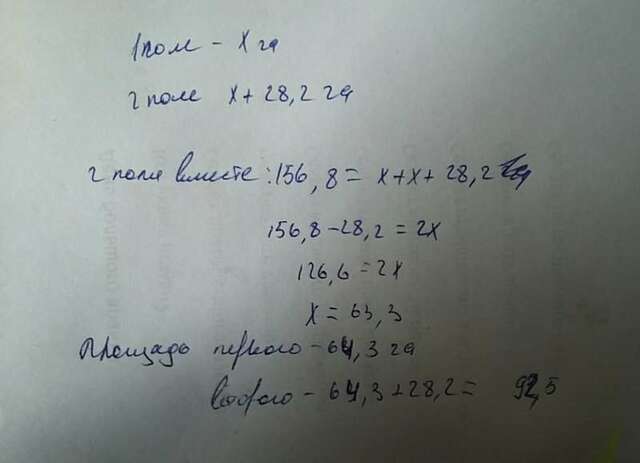 1 поле - x га
2 поле x + 28,2 га
2 поля вместе: 156,8 = x + x + 28,2
156,8 - 28,2 = 2x
126,6 = 2x
x = 63,3
Площадь первого - 64,3 га
второго - 64,3 + 28,2 = 92,5